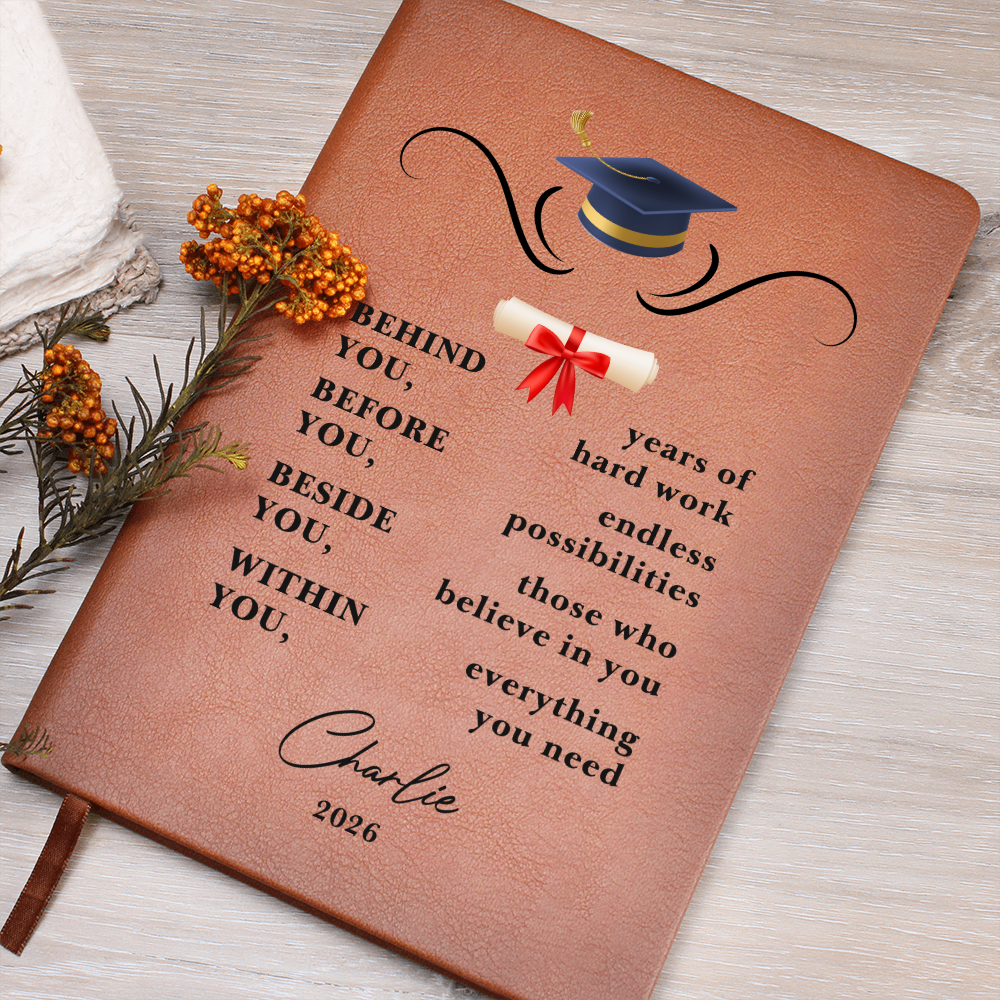 BEHIND
YOU,
years of
hard work
BEFORE
YOU,
endless
possibilities
BESIDE
YOU,
those who
believe in you
WITHIN
YOU,
everything
you need
Charlie
2026